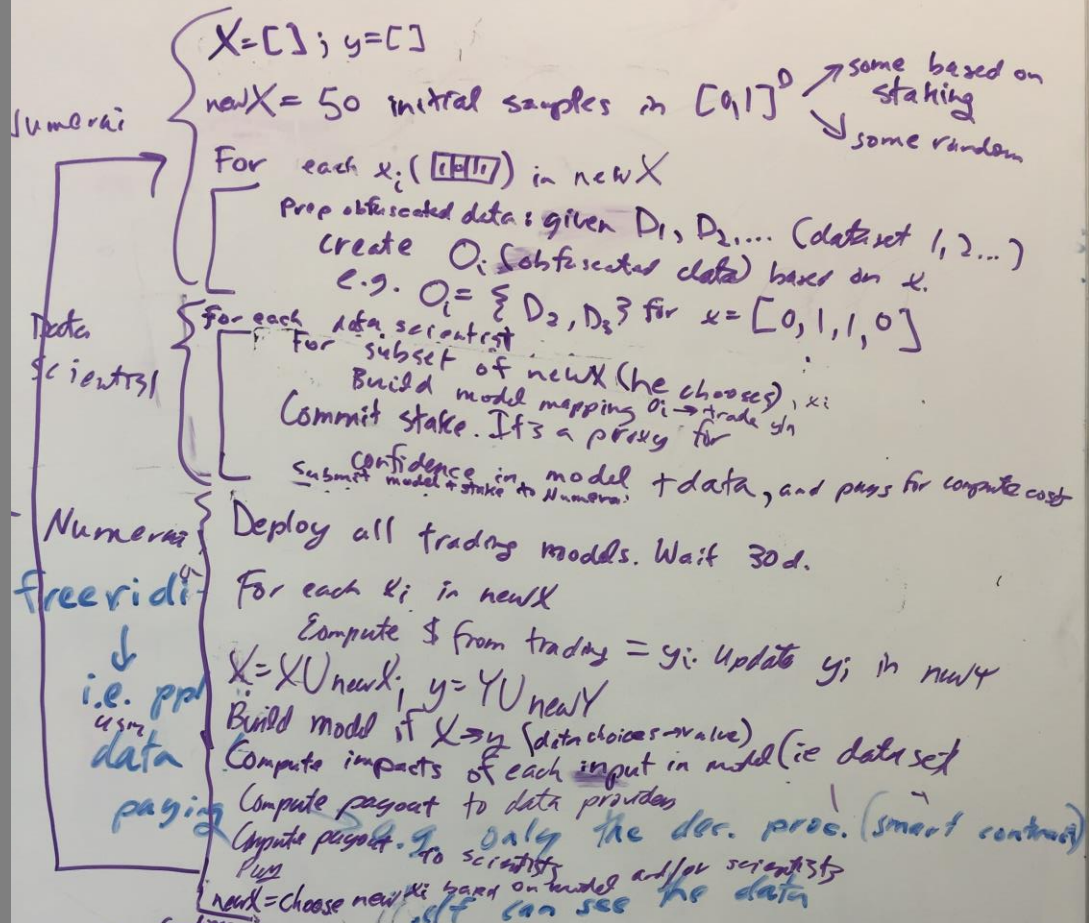 X=[] ; y=[]
newX = 50 initial samples in [0,1]^D
some based on
staking
some random
For each xi ( ) in newX
Prep obfuscated data: given D1, D2, .... (dataset 1, 2...)
create Oi (obfuscated data) based on x.
e.g. Oi = {D2, D3} for x = [0,1,1,0]
Data
Scientist
For each data scientist
For subset of newX (he chooses), xi
Build model mapping Oi → trade y/n
Commit stake. It's a proxy for
confidence in model + data, and pays for compute cost
Submit model + stake to Numerai
Numerai
Deploy all trading models. Wait 30d.
For each xi in newX
Compute $ from trading = yi. Update yi in newY
X = X U newX; y = Y U newY
Build model if X→y (data choices→value)
Compute impacts of each input in model (ie dataset
Compute payout to data providers
Compute payout to scientists
newX = choose new xi based on model and/or scientists
freeridi
↓
i.e. ppl
using
data
paying
e.g. only the dec. proc. (smart contract)
itself can see the data